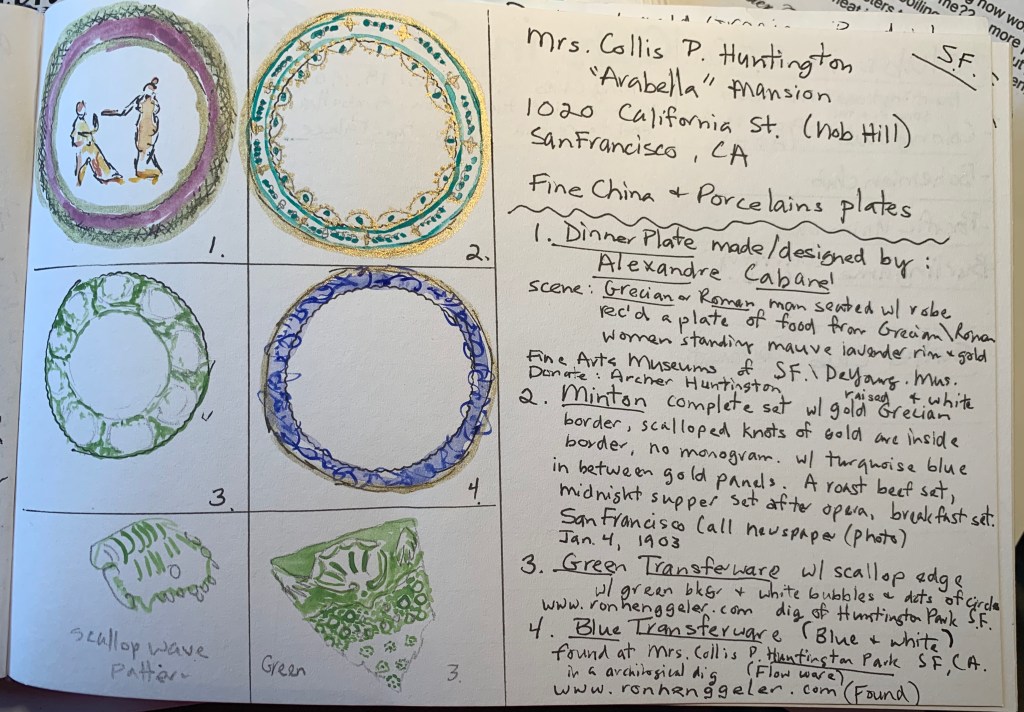 1.
2.
3.
4.
scallop wave
Pattern
Green
3.
S.F.
Mrs. Collis P. Huntington
"Arabella" Mansion
1020 California St. (Nob Hill)
San Francisco, CA
Fine China & Porcelains plates
1. Dinner Plate made/designed by:
Alexandre Cabanel
scene: Grecian or Roman man seated w/ robe
rec'd a plate of food from Grecian\Roman
women standing mauve lavender rim & gold
Fine Arts Museums of SF.\DeYoung. Mus.
Donate: Archer Huntington
raised & white
2. Minton complete set w/ gold Grecian
border, scalloped knots of gold are inside
border, no monogram. w/ turquoise blue
in between gold panels. A roast beef set,
midnight supper set after opera, breakfast set.
San Francisco Call newspaper (photo)
Jan. 4, 1903
3. Green Transferware w/ scallop edge
w/ green bkgr & white bubbles & dots of circles
www.ronhenggeler.com dig of Huntington Park S.F.
4. Blue Transferware (Blue & white)
found at Mrs. Collis P. Huntington Park SF, CA.
in a archilogical dig (Flow ware)
www.ronhenggeler.com (Found)